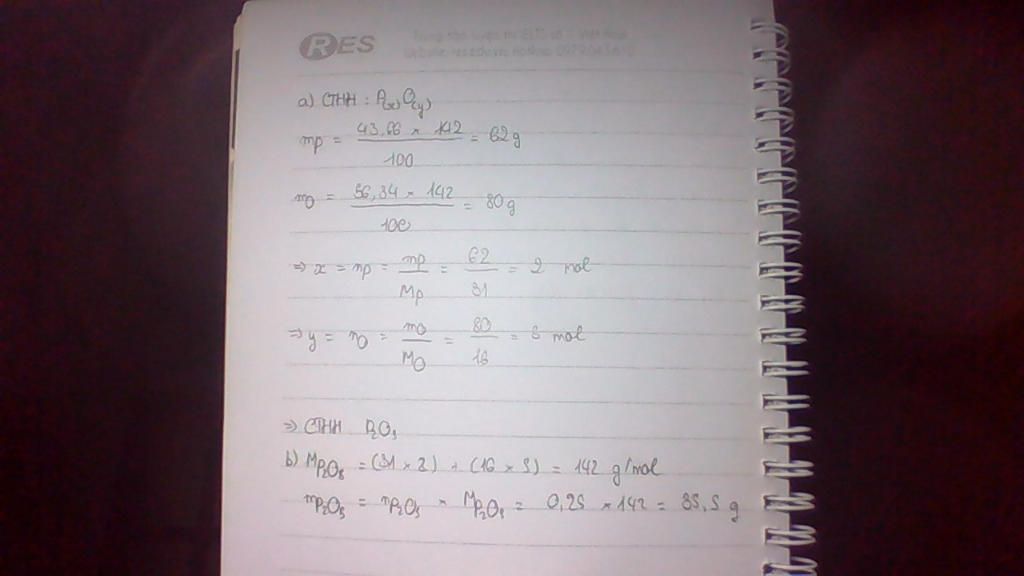 RES
a) CTHH : P(x)O(y)
mp = 43,66 × 142 / 100 = 62g
mO = 56,34 × 142 / 100 = 80g
=> x = np = mp / Mp = 62 / 31 = 2 mol
=> y = nO = mO / MO = 80 / 16 = 5 mol
=> CTHH P2O5
b) MP2O5 = (31 × 2) + (16 × 5) = 142 g/mol
mP2O5 = nP2O5 × MP2O5 = 0,25 × 142 = 35,5 g